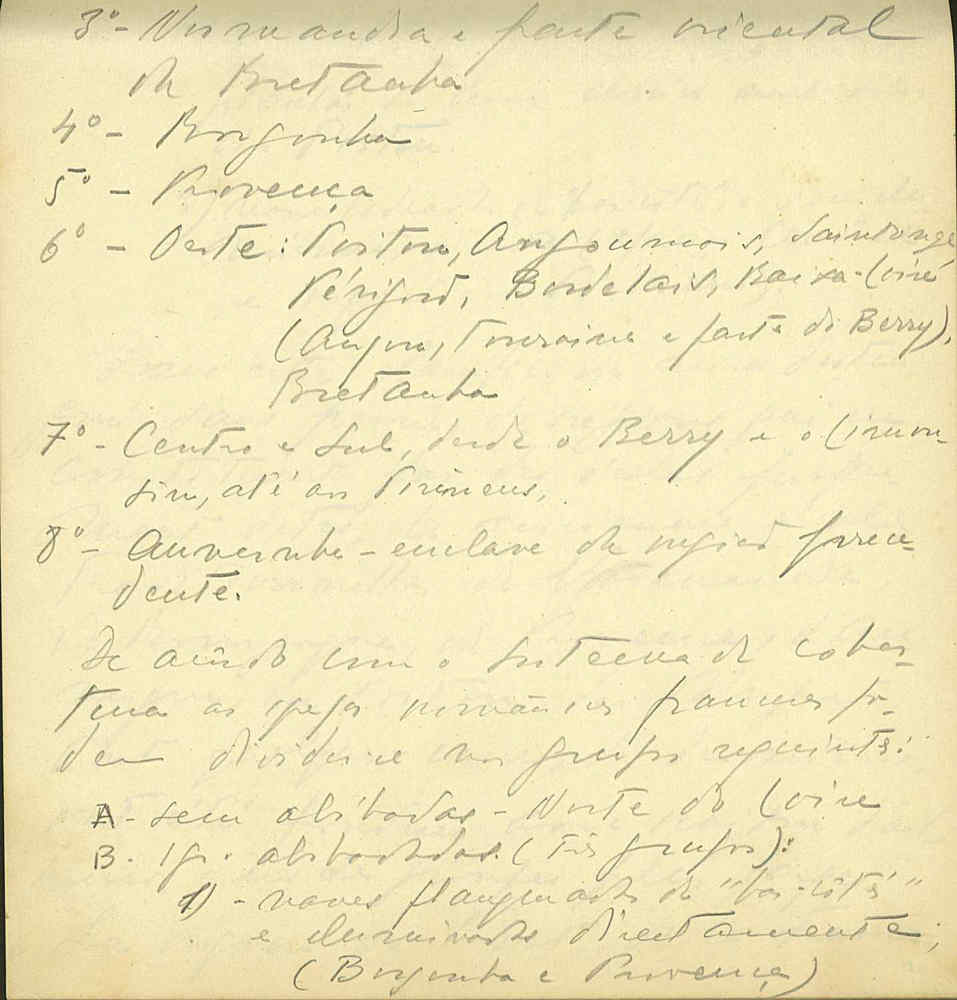 3º - Normandia e parte oriental
da Bretanha
4º - Borgonha
5º - Provença
6º - Oeste: Poitou, Angoumois, Saintonge
Périgord, Bordelais, Baixa-Loire
(Anjou, Touraine e parte do Berry),
Bretanha
7º - Centro e Sul, desde o Berry e o Limou-
sin, até aos Pirineus,
8º - Auvernhe - enclave da região prece-
dente.
De acôrdo com o sistema de cober-
tura as igrejas românicas francesas po-
dem dividir-se nos grupos seguintes:
A - sem abóbadas - Norte do Loire
B - Igr. abobadadas. (três grupos):
1) - naves flanqueadas de "bas-côtés"
e iluminadas directamente;
(Borgonha e Provença)